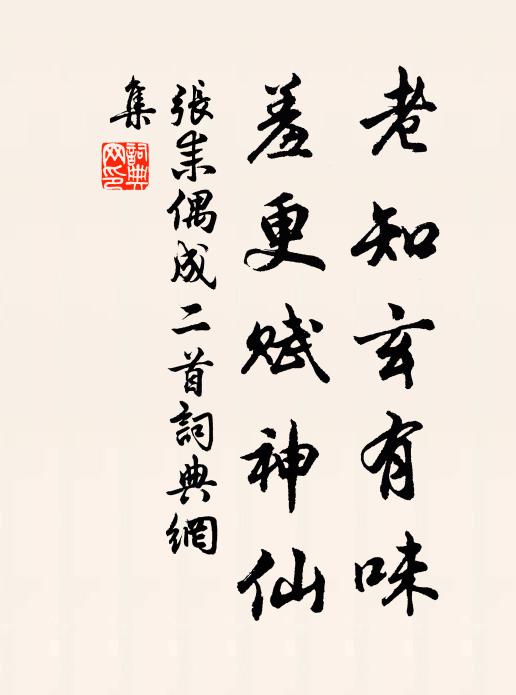 老知玄有味
羞更賦神仙
張耒偶成二首詞典網
集
詞典
网印